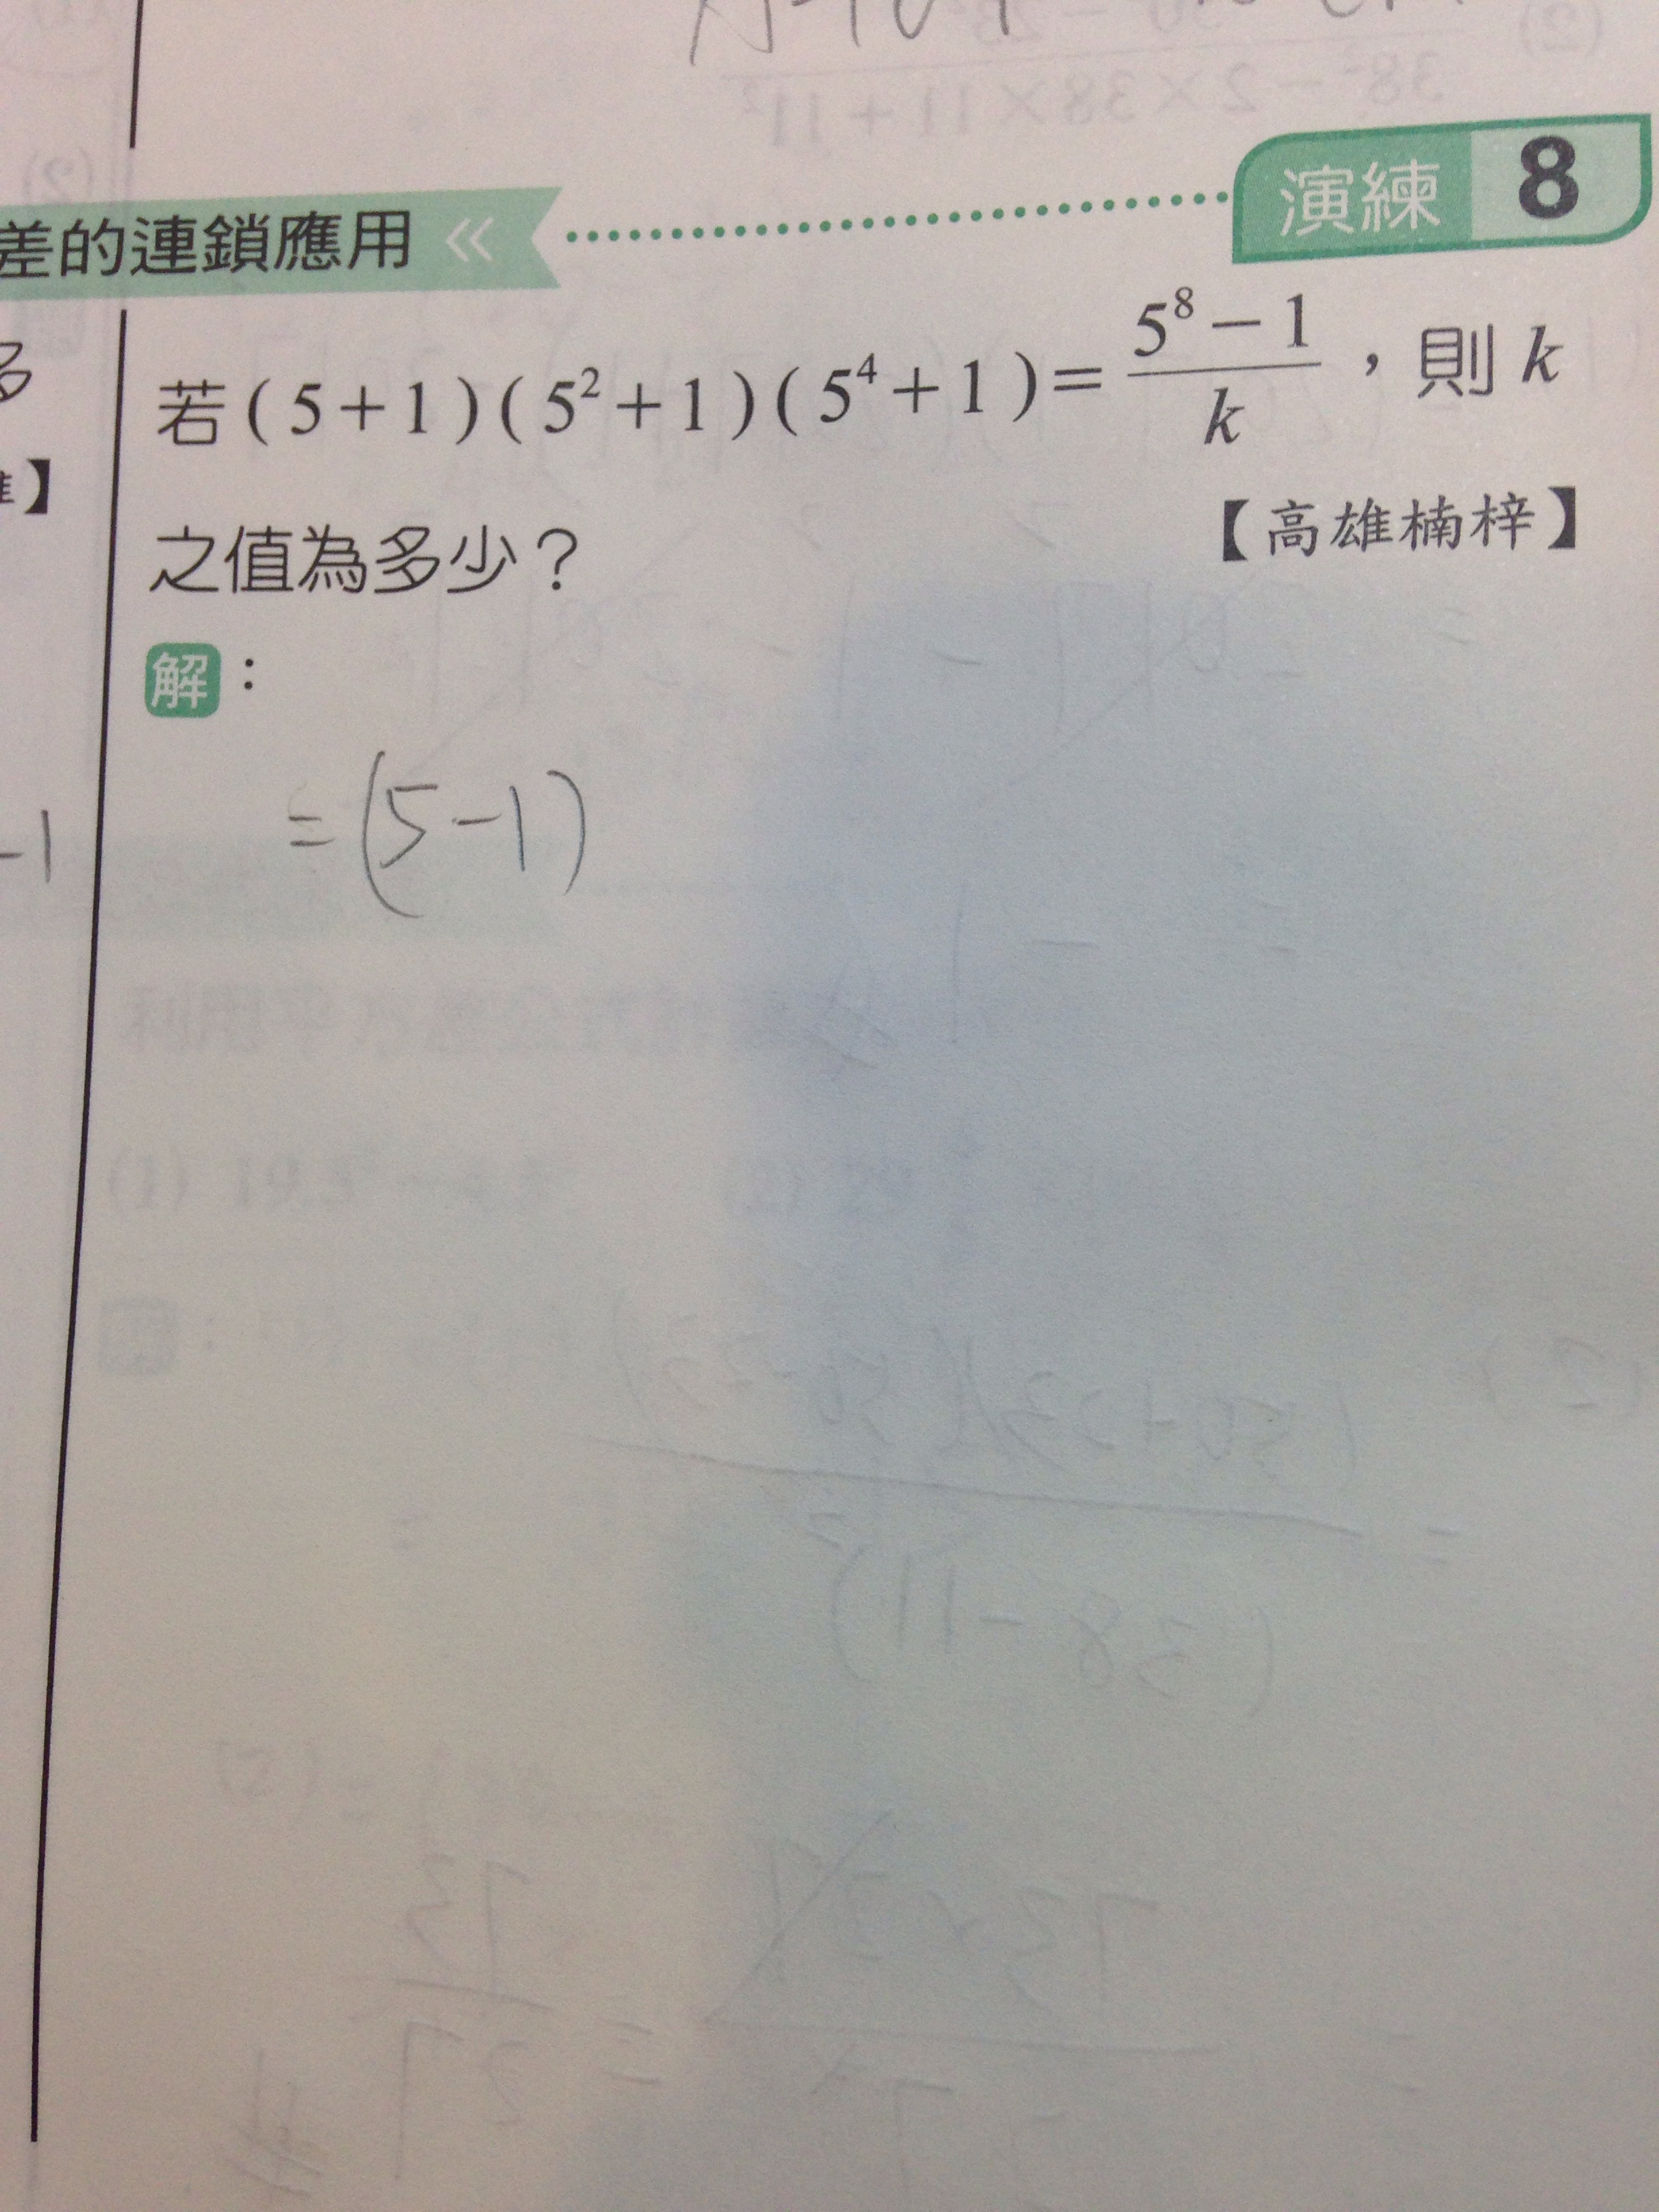 演練 8
差的連鎖應用 «
若(5+1)(5²+1)(5⁴+1)=\frac{5⁸-1}{k},則k
之值為多少?
【高雄楠梓】
解:
多
】
-1
=(5-1)